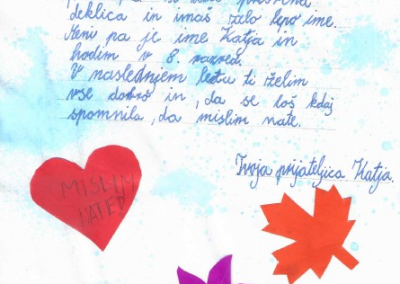 deklica in imaš zelo lepo ime.
Meni pa je ime Katja in
hodim v 8. razred.
V naslednjem letu ti želim
vse dobro in, da se boš kdaj
spomnila, da mislim nate.
Tvoja prijateljica Katja.
MISLIM
NATE